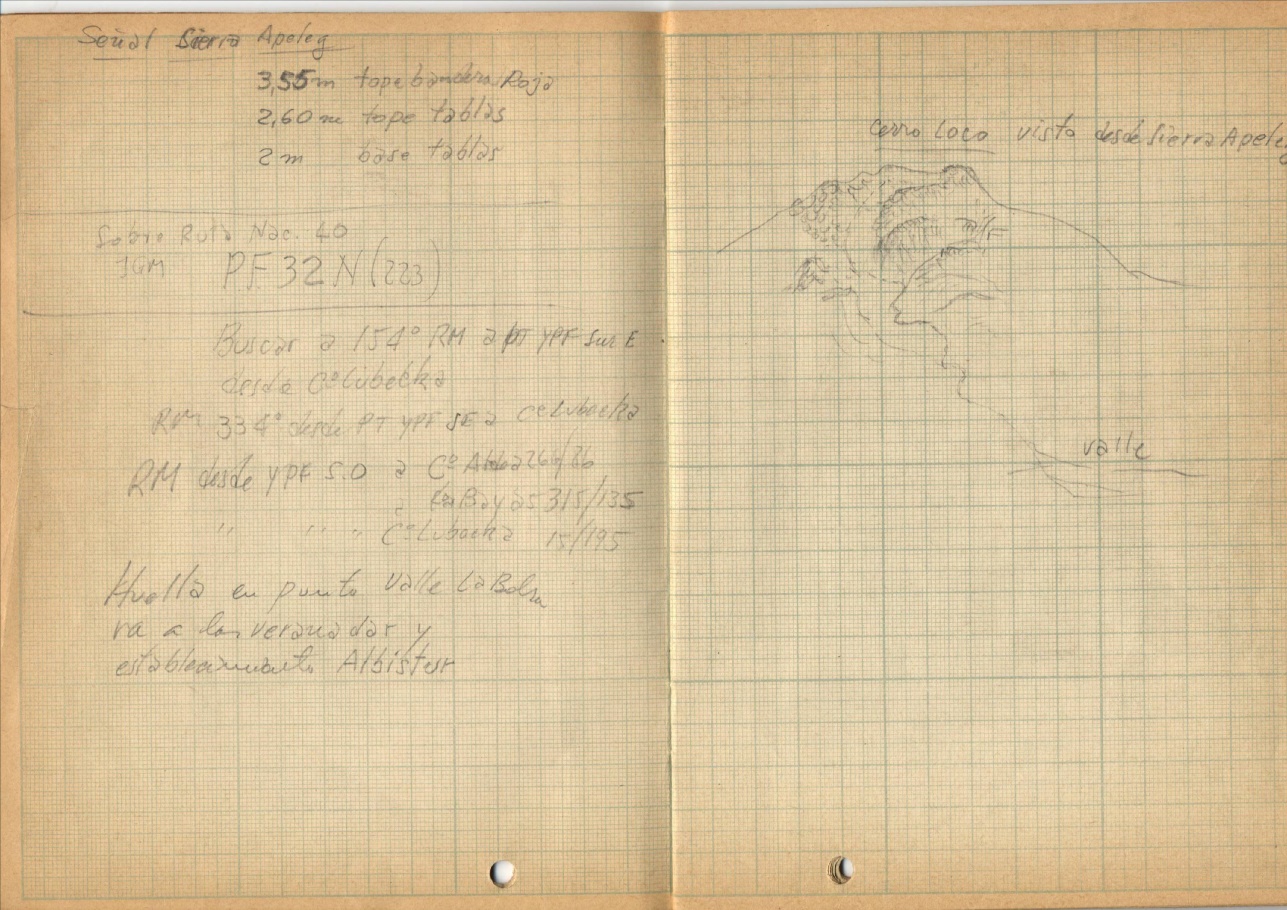 Señal Sierra Apeleg
3,55 m tope bandera Roja
2,60 m tope tablas
2 m base tablas
Sobre Ruta Nac. 40
IGM PF 32 N (223)
Buscar a 154° RM a PT YPF Sur E
desde C° Lubecka
RM 334° desde PT YPF SE a C° Lubecka
RM desde YPF S.O a C° 266/86
Bayas 315/135
" " " C° Lubecka 15/195
Huella en punto Valle La Bolsa
va a las veranadas y
establecimiento Albistur
cerro Loco vista desde Sierra Apeleg
valle